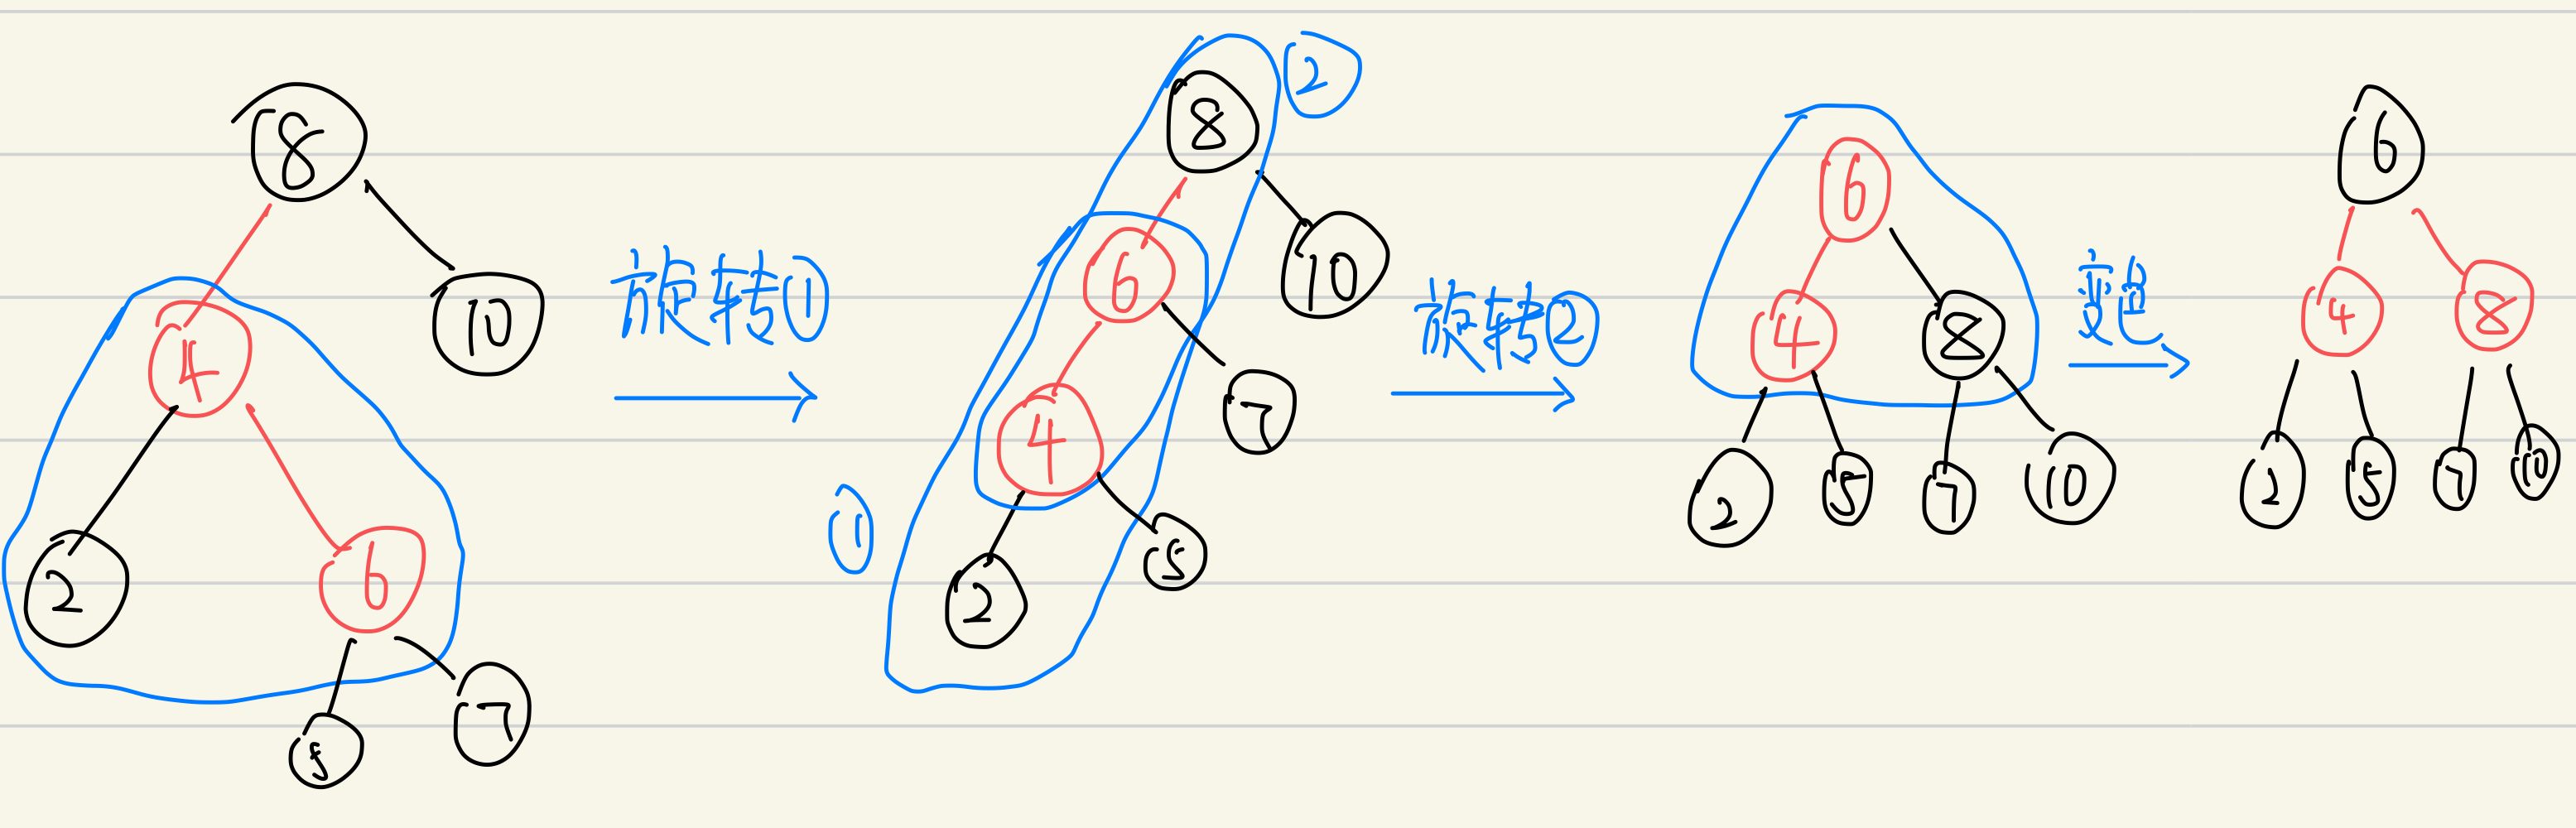 8
4
10
2
6
5
7
旋转①
8
②
6
10
4
7
①
2
5
旋转②
6
4
8
2
5
7
10
变色
6
4
8
2
5
7
10